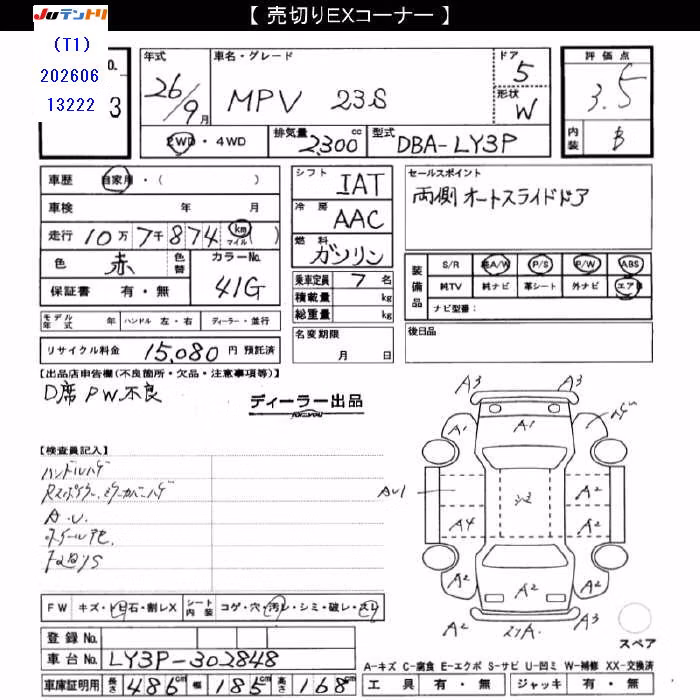 【 売切りEXコーナー 】
JUテントリ
(T1)
202606
13222
O.
3
年式
26/9月
車名・グレード
MPV 23S
ドア
5
形状
W
評価点
3.5
内装
B
2WD・4WD
排気量 2,300 cc
型式 DBA-LY3P
車歴 自家用・( )
車検 年 月
走行 10万 7千 874 km マイル ( )
色 赤 色替
カラーNo.
41G
保証書 有・無
シフト
IAT
冷房
AAC
燃料
ガソリン
乗車定員 7 名
積載量 kg
総重量 kg
セールスポイント
両側オートスライドドア
装備品
S/R 純A/W P/S P/W ABS
純TV 純ナビ 革シート 外ナビ エアB
ナビ型番：
モデル年式 年 ハンドル 左・右 ディーラー・並行
名変期限
月 日
後日品
リサイクル料金 15,080 円 預託済
【出品店申告欄(不良箇所・欠品・注意事項等)】
D席PW不良
ディーラー出品
for-YOU
【検査員記入】
ハンドルハゲ
A.U.
A3 A3
A1 A1
AU1 A2
A4 A2
A2 A2 A2
A2 A3
FW キズ・トビ石・割レX シート内装 コゲ・穴・汚レ・シミ・破レ・スレ
スペア
登録 No.
車台 No. LY3P-302848
A-キズ C-腐食 E-エクボ S-サビ U-凹ミ W-補修 XX-交換済
車庫証明用 長さ 486cm 幅 185cm 高さ 168cm
工具 有・無 ジャッキ 有・無